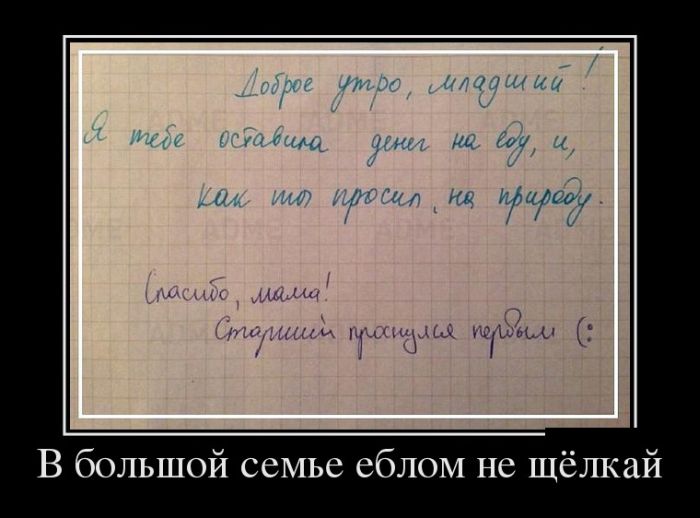 Доброе утро, младший!
Я тебе оставила денег на еду, и,
как ты просил, на природу.
Спасибо, мама!
Старший проснулся первым (:
В большой семье еблом не щёлкай